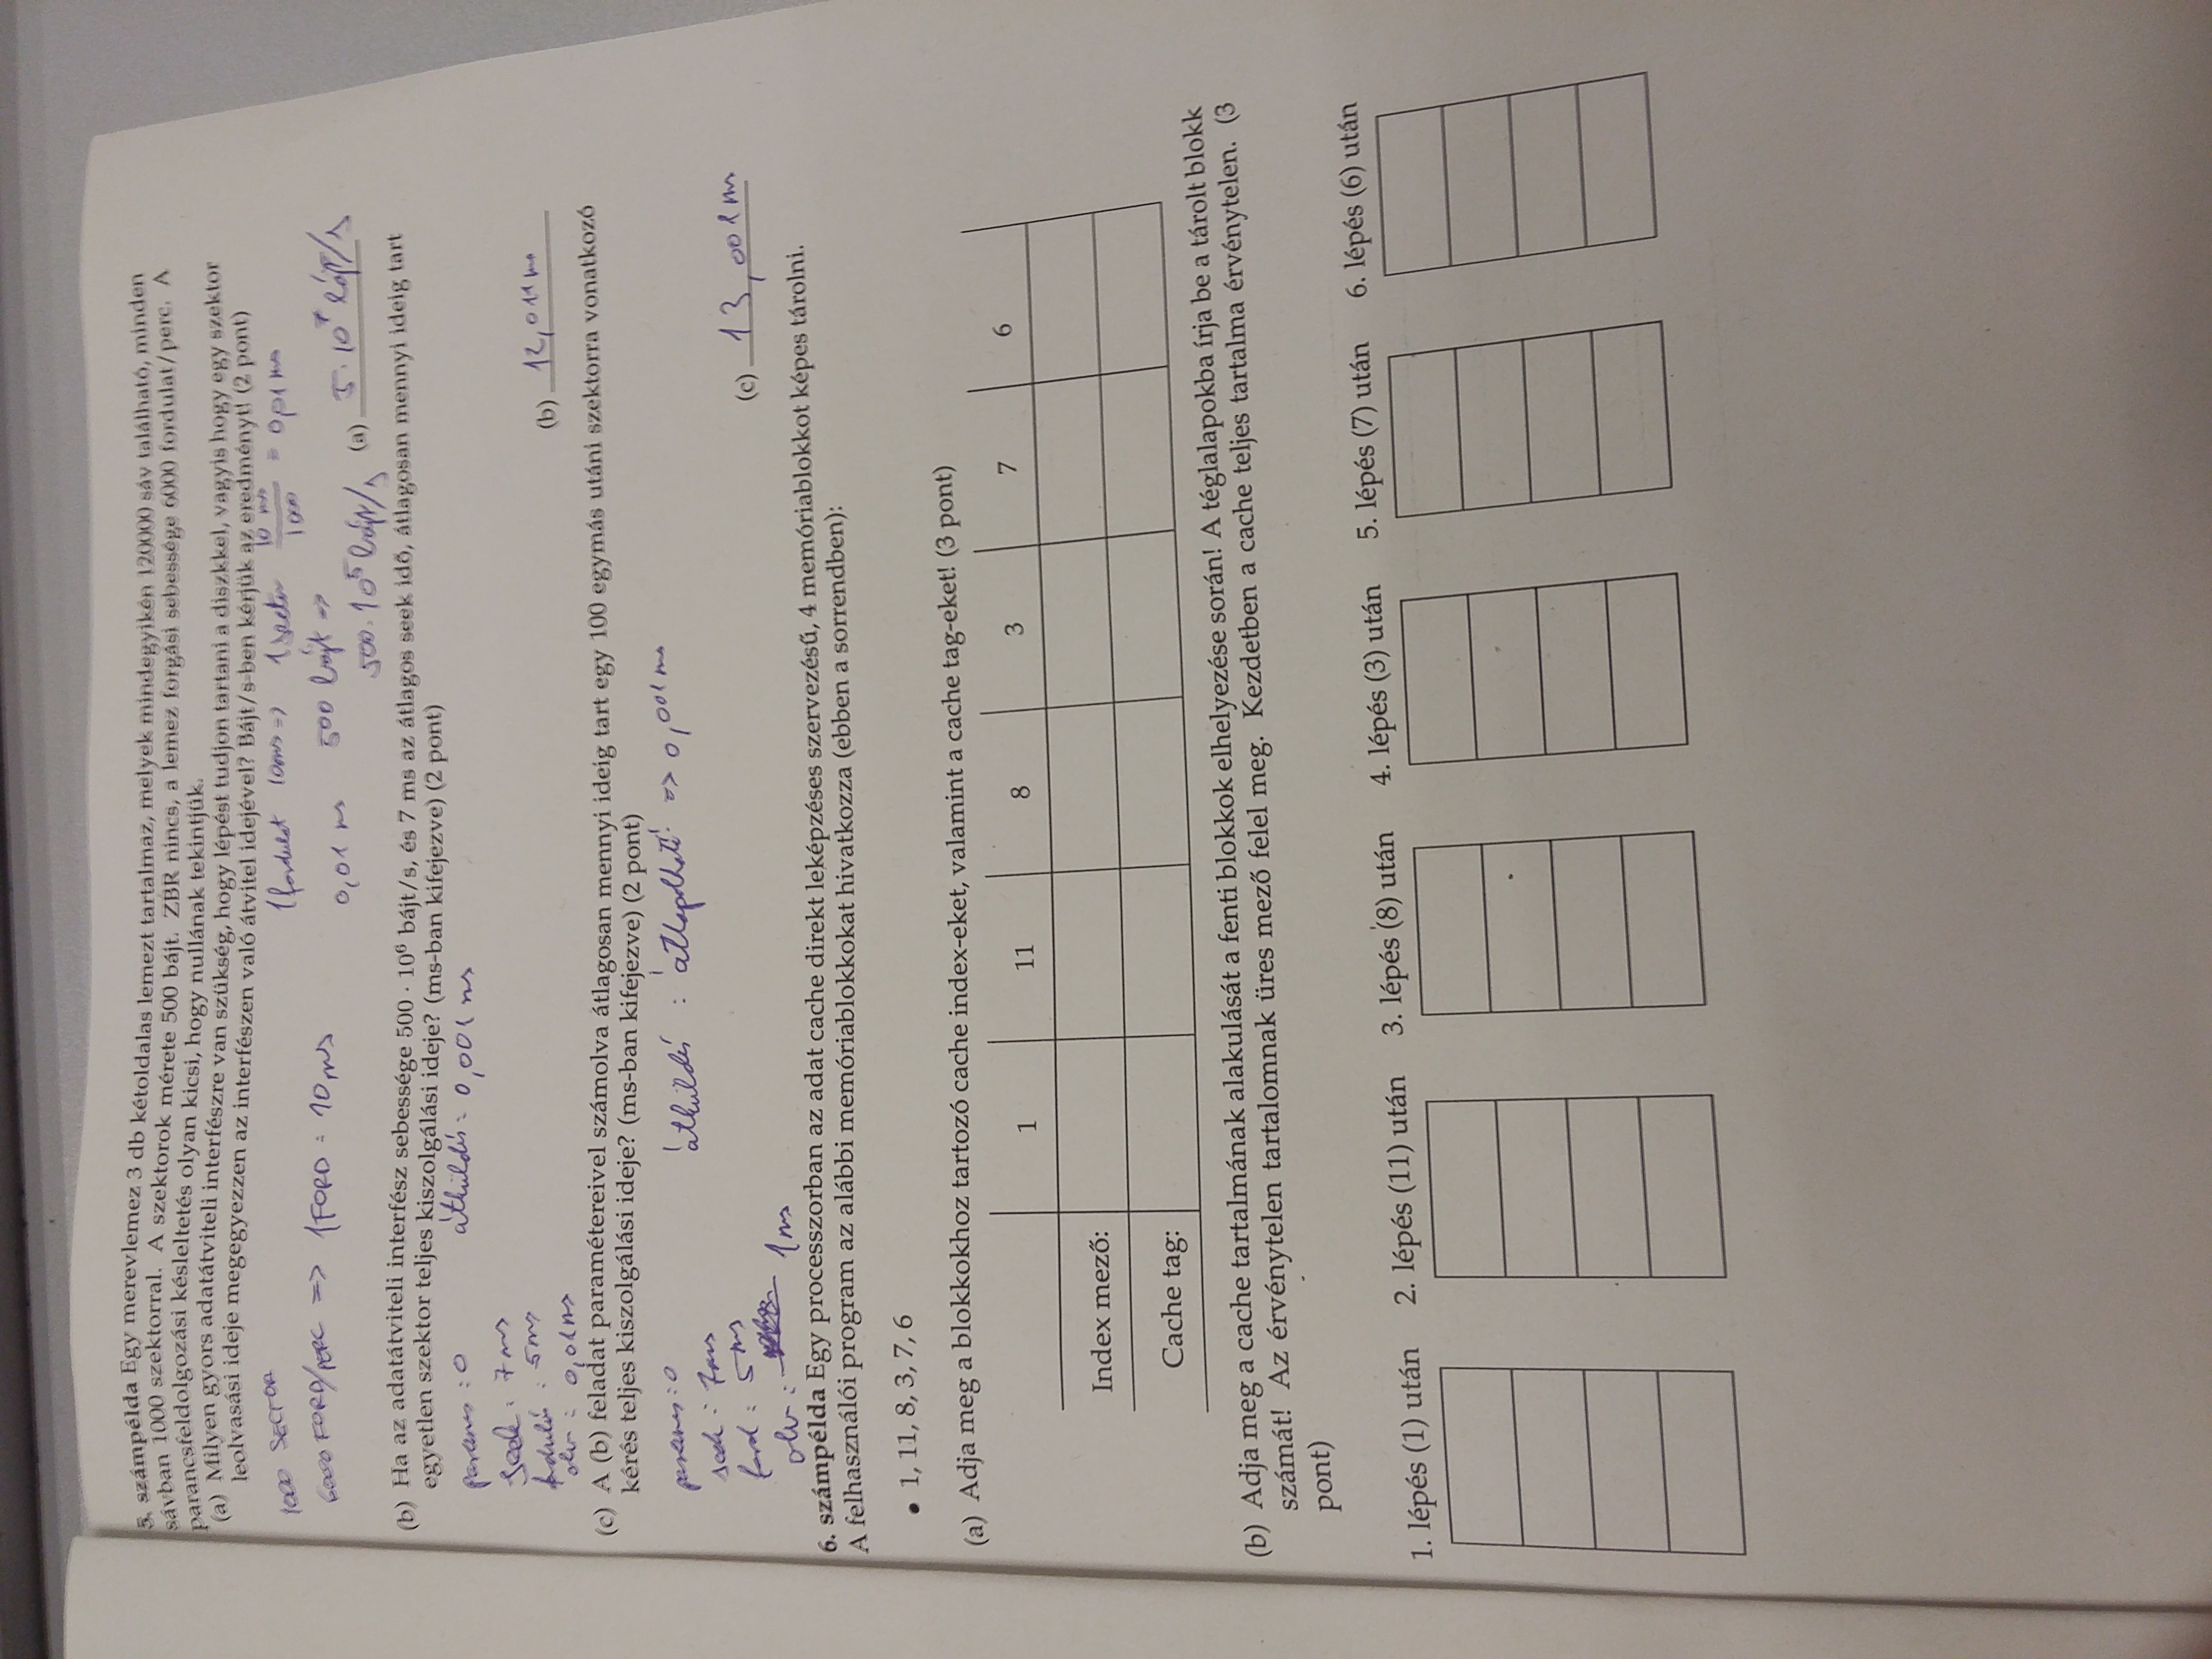 5. számpélda Egy merevlemez 3 db kétoldalas lemezt tartalmaz, melyek mindegyikén 120000 sáv található, minden
sávban 1000 szektorral. A szektorok mérete 500 bájt. ZBR nincs, a lemez forgási sebessége 6000 fordulat/perc. A
parancsfeldolgozási késleltetés olyan kicsi, hogy nullának tekintjük.
(a) Milyen gyors adatátviteli interfészre van szükség, hogy lépést tudjon tartani a diszkkel, vagyis hogy egy szektor
leolvasási ideje megegyezzen az interfészen való átvitel idejével? Bájt/s-ben kérjük az eredményt! (2 pont)
1000 SECTOR
1 fordulat 10ms => 1 sector 10 ms / 1000 = 0,01 ms
6000 FORD/PERC => 1 FORD = 10 ms
0,01 ms 500 bájt =>
500·10⁵ bájt/s (a) 5·10⁷ bájt/s
(b) Ha az adatátviteli interfész sebessége 500 · 10⁶ bájt/s, és 7 ms az átlagos seek idő, átlagosan mennyi ideig tart
egyetlen szektor teljes kiszolgálási ideje? (ms-ban kifejezve) (2 pont)
parancs : 0 átküldés = 0,001 ms
seek : 7 ms
fordulás : 5 ms
olv : 0,01 ms
(b) 12,011 ms
(c) A (b) feladat paramétereivel számolva átlagosan mennyi ideig tart egy 100 egymás utáni szektorra vonatkozó
kérés teljes kiszolgálási ideje? (ms-ban kifejezve) (2 pont)
parancs : 0 átküldés : átlapolható => 0,001 ms
seek : 7 ms
ford : 5 ms
(c) 13,001 ms
olv : 1 ms
6. számpélda Egy processzorban az adat cache direkt leképzéses szervezésű, 4 memóriablokkot képes tárolni.
A felhasználói program az alábbi memóriablokkokat hivatkozza (ebben a sorrendben):
• 1, 11, 8, 3, 7, 6
(a) Adja meg a blokkokhoz tartozó cache index-eket, valamint a cache tag-eket! (3 pont)
1 11 8 3 7 6
Index mező:
Cache tag:
(b) Adja meg a cache tartalmának alakulását a fenti blokkok elhelyezése során! A téglalapokba írja be a tárolt blokk
számát! Az érvénytelen tartalomnak üres mező felel meg. Kezdetben a cache teljes tartalma érvénytelen. (3
pont)
1. lépés (1) után 2. lépés (11) után 3. lépés (8) után 4. lépés (3) után 5. lépés (7) után 6. lépés (6) után